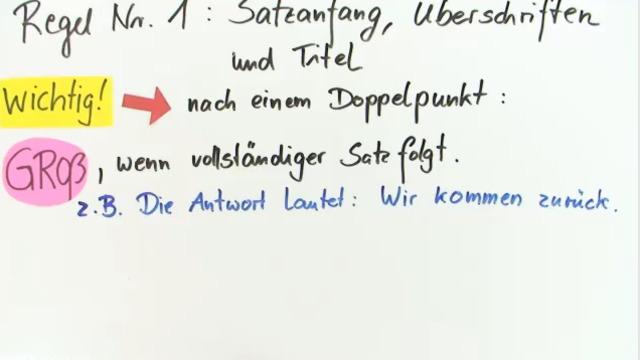 Regel Nr. 1: Satzanfang, Überschriften
und Titel
Wichtig! nach einem Doppelpunkt:
GROß, wenn vollständiger Satz folgt.
z.B. Die Antwort lautet: Wir kommen zurück.